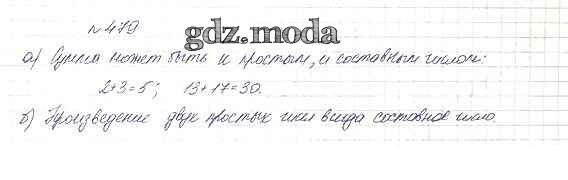 №479
gdz.moda
а) Сумма может быть и простым, и составным числом:
2+3=5; 13+17=30.
б) Произведение двух простых чисел всегда составное число.